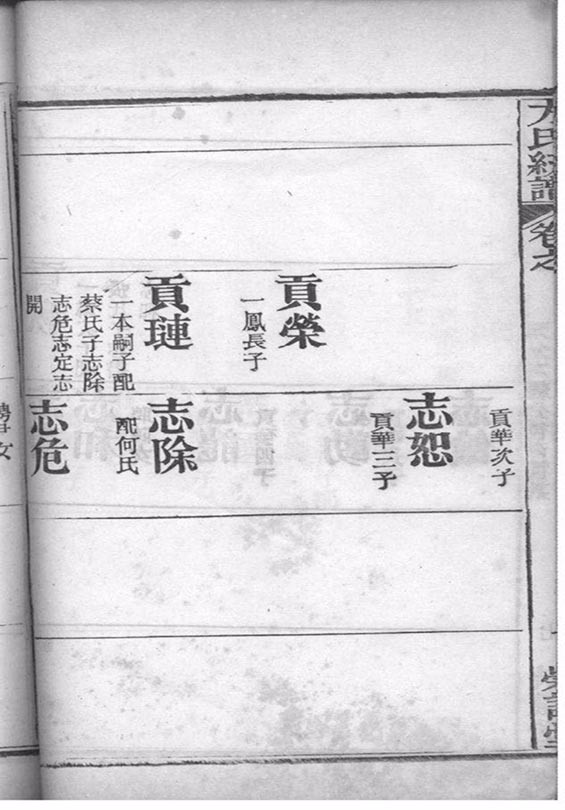 方氏統譜
卷之
貢榮
一鳳長子
貢璉
一本嗣子配
蔡氏子志除
志危志定志
開
貢華次子
志恕
貢華三子
志除
配何氏
志危